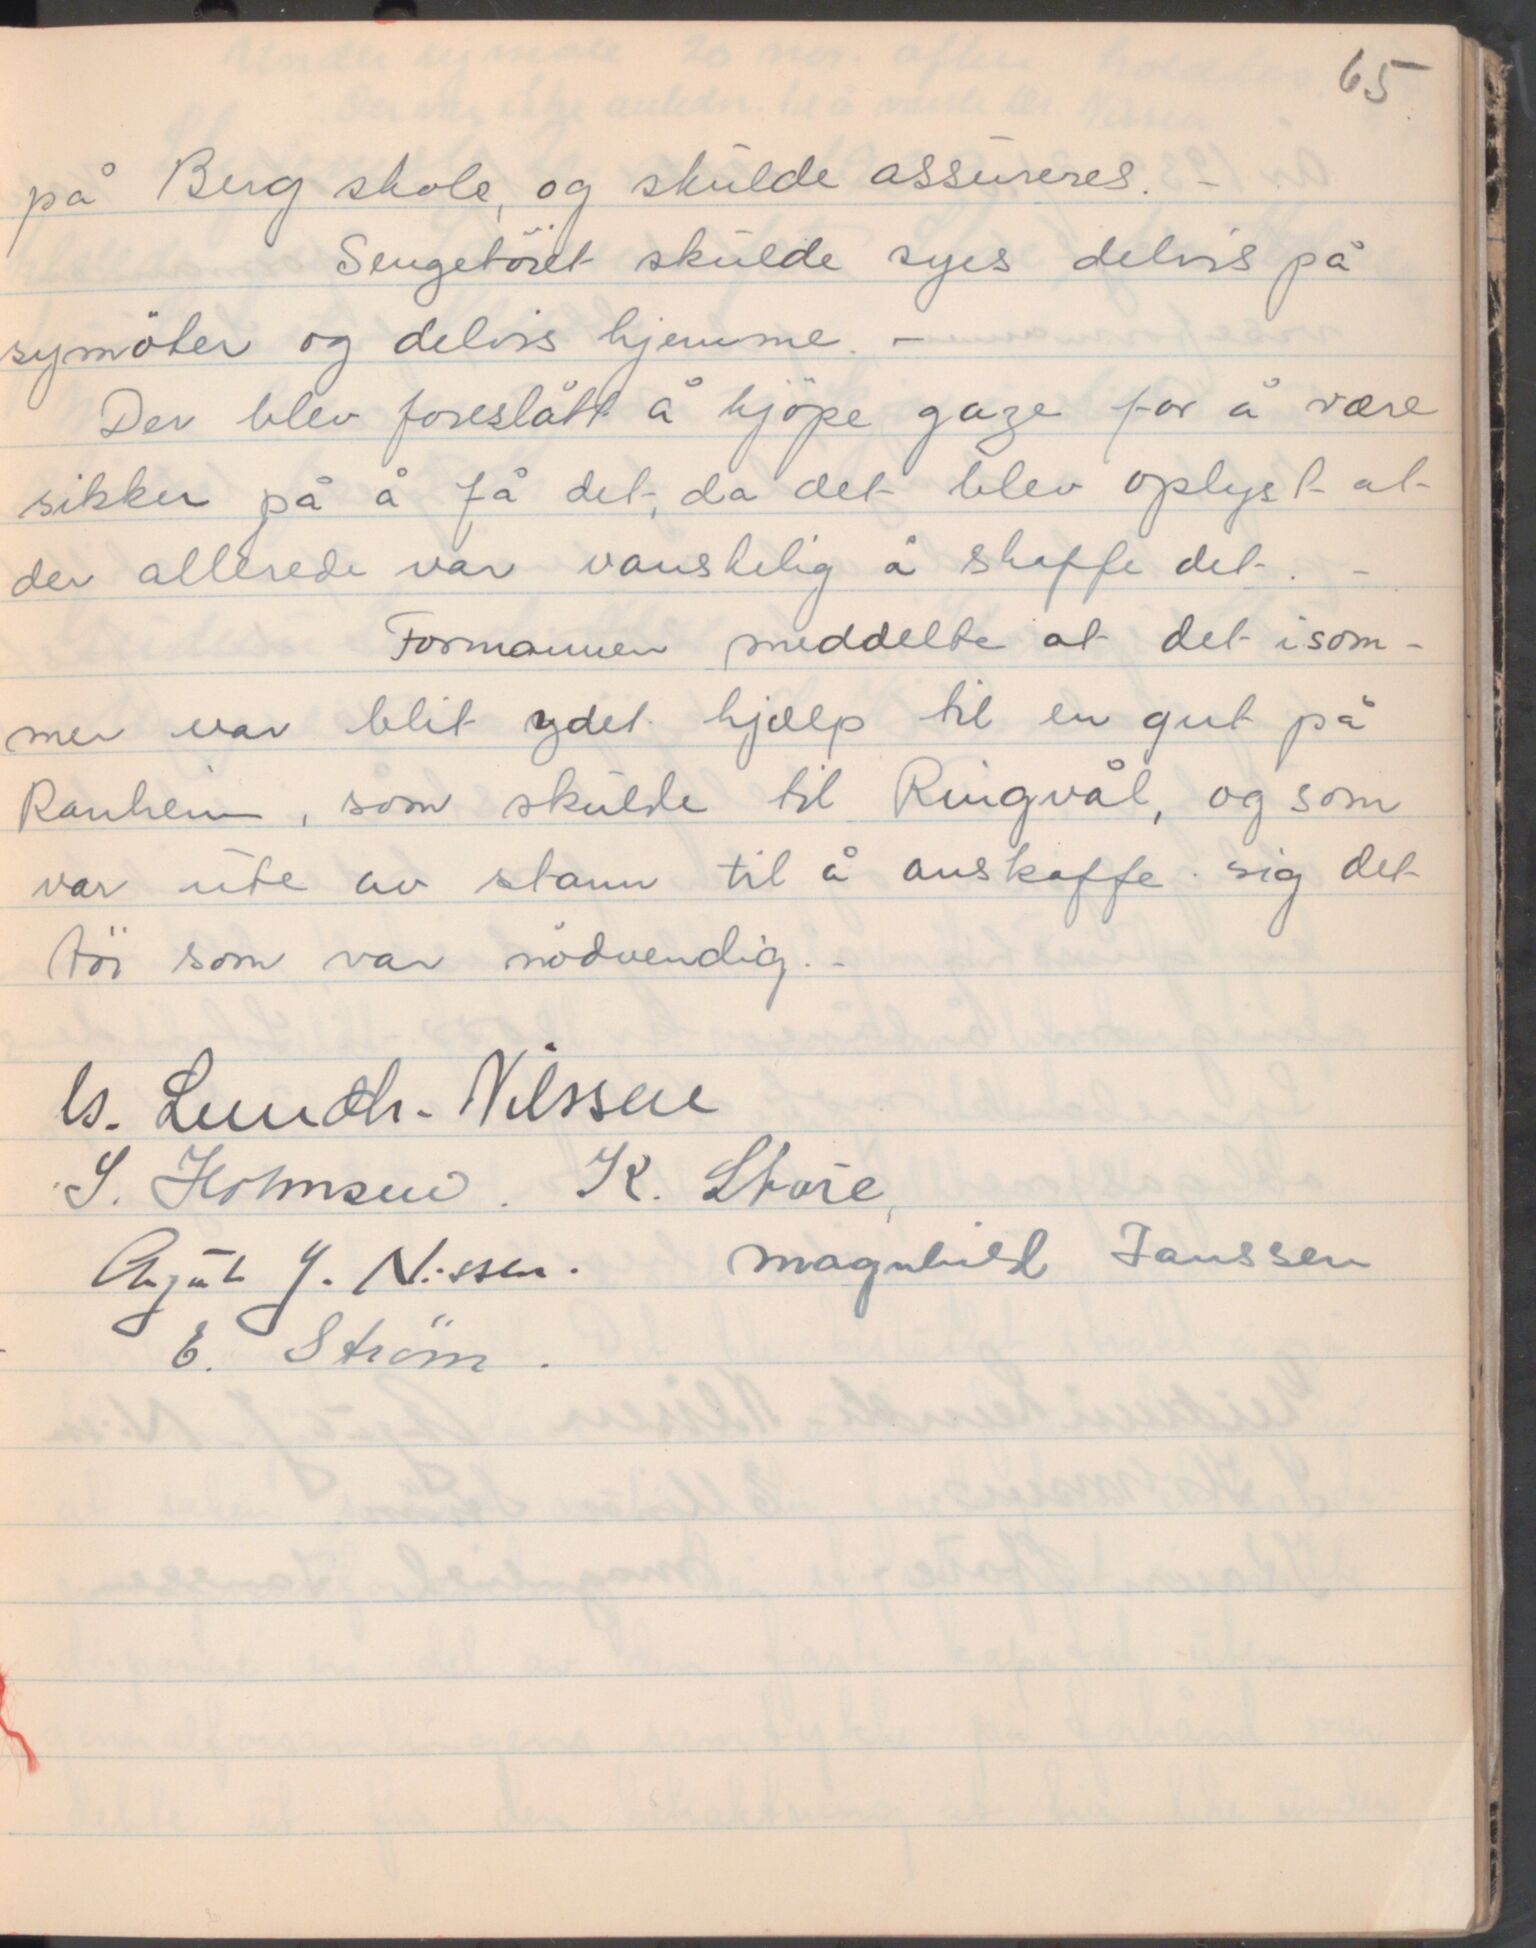 65
på Berg skole, og skulde assureres. -
Sengetöiet skulde syes delvis på
symöter og delvis hjemme. -
Der blev foreslått å kjöpe gaze for å være
sikker på å få det, da det blev oplyst at
der allerede var vanskelig å skaffe det. -
Formannen meddelte at det isom-
mer var blit ydet hjælp til en gut på
Ranheim, som skulde til Ringvål, og som
var ute av stann til å anskaffe sig det
töi som var nödvendig. -
Lundh-Nilssen
S. Holmsen. K. Støre,
J. Nissen. Magnhild Janssen
E. Ström.